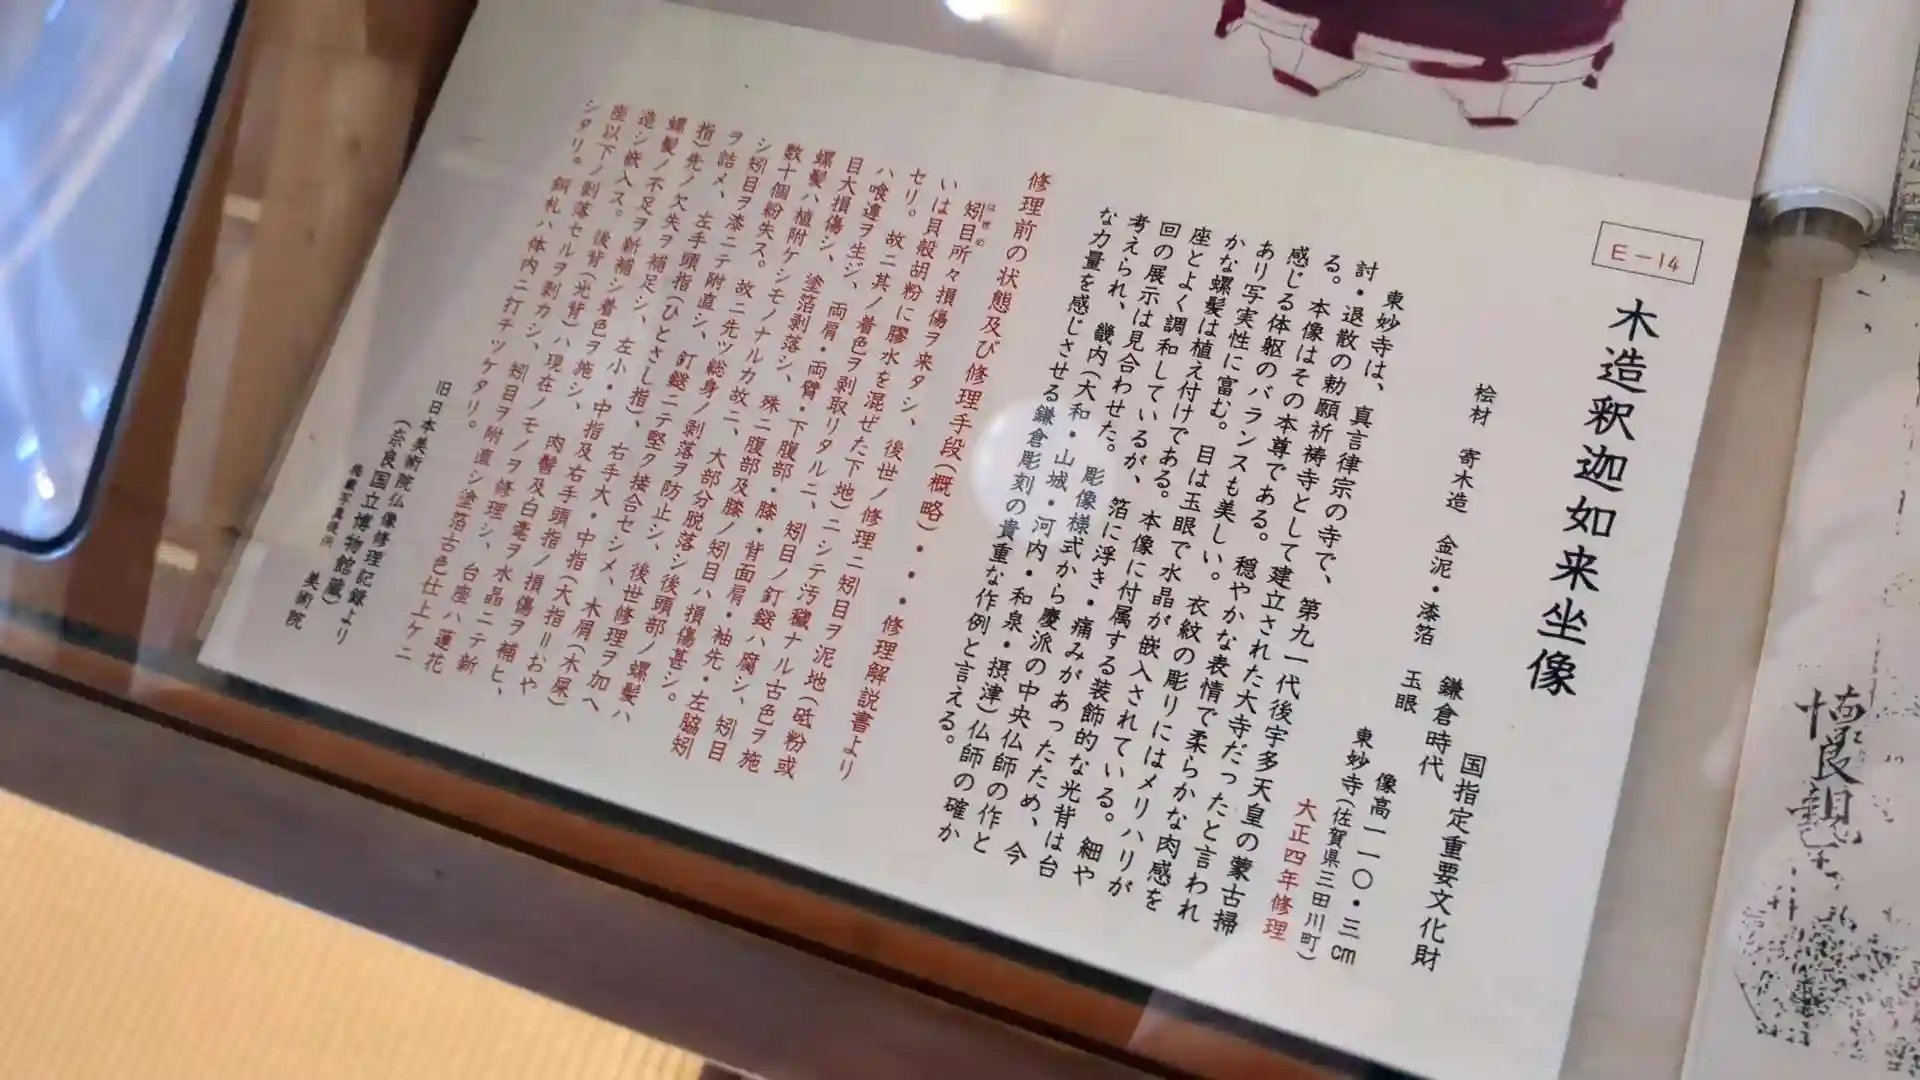 E－14
木造釈迦如来坐像
国指定重要文化財
桧材　寄木造　金泥・漆箔　玉眼
鎌倉時代
像高一一〇・三cm
東妙寺（佐賀県三田川町）
大正四年修理
東妙寺は、真言律宗の寺で、第九一代後宇多天皇の蒙古掃
討・退散の勅願祈祷寺として建立された大寺だったと言われ
る。本像はその本尊である。穏やかな表情で柔らかな肉感を
感じる体躯のバランスも美しい。衣紋の彫りにはメリハリが
あり写実性に富む。目は玉眼で水晶が嵌入されている。細や
かな螺髪は植え付けである。本像に付属する装飾的な光背は台
座とよく調和しているが、箔に浮き・痛みがあったため、今
回の展示は見合わせた。彫像様式から慶派の中央仏師の作と
考えられ、畿内（大和・山城・河内・和泉・摂津）仏師の確か
な力量を感じさせる鎌倉彫刻の貴重な作例と言える。
修理前の状態及び修理手段（概略）・・・修理解説書より
矧目所々損傷ヲ来タシ、後世ノ修理ニ矧目ヲ泥地（砥粉或
はぎめ
いは貝殻胡粉に膠水を混ぜた下地）ニシテ汚穢ナル古色ヲ施
セリ。故ニ其ノ着色ヲ剥取リタルニ、矧目ノ釘鎹ハ腐シ、矧目
ハ喰違ヲ生ジ、両肩・両臂・下腹部・膝・背面肩・袖先・左脇矧
目大損傷シ、塗箔剥落シ、殊ニ腹部及膝ノ矧目ハ損傷甚シ。
螺髪ハ植附ケシモノナルカ故ニ、大部分脱落シ後頭部ノ螺髪ハ
数十個紛失ス。故ニ先ツ総身ノ剥落ヲ防止シ、後世修理ヲ加ヘ
シ矧目ヲ漆ニテ附直シ、釘鎹ニテ堅ク接合セシメ、木屑（木屎）
ヲ詰メ、左手頭指（ひとさし指）、右手大・中指（大指＝おや
指）先ノ欠失ヲ補足シ、左小・中指及右手頭指ノ損傷ヲ補ヒ、
螺髪ノ不足ヲ新補シ着色ヲ施シ、肉髻及白毫ヲ水晶ニテ新
造シ嵌入ス。後背（光背）ハ現在ノモノヲ修理シ、台座ハ蓮花
座以下ノ剥落セルヲ剥カシ、矧目ヲ附直シ塗箔古色仕上ケニ
シタリ。銅札ハ体内ニ打チツケタリ。
旧日本美術院仏像修理記録より
（奈良国立博物館蔵）
掲載写真提供　美術院